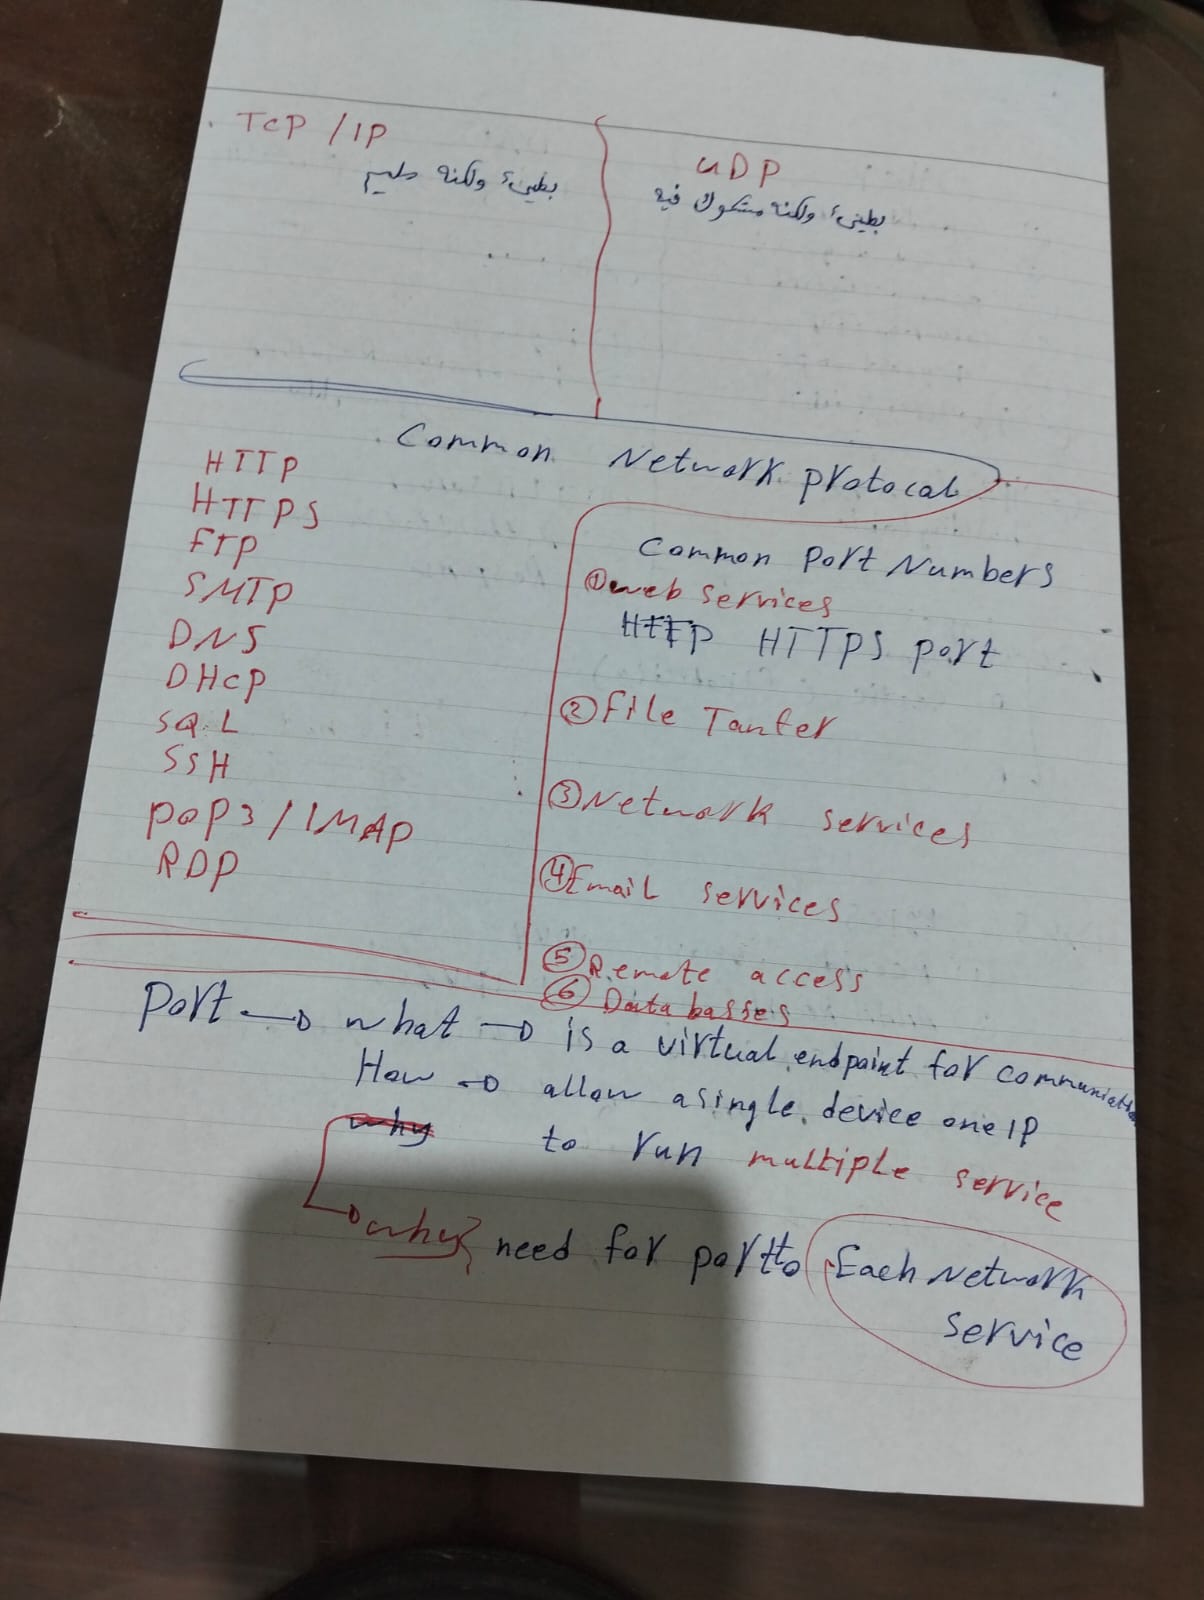 TCP / IP
بطيئ ولكنه سليم
UDP
بطيئ ولكنه مشكوك فيه
Common Network protocal
HTTP
HTTPS
FTP
SMTP
DNS
DHCP
SQL
SSH
POP3 / IMAP
RDP
Common Port Numbers
① web services
HTTP HTTPS port
② File Tanfer
③ Network services
④ Email services
⑤ Remote access
⑥ Data basses
Port → what → is a virtual endpoint for communiation
How → allow a single device one IP
why to run multiple service
why need for port to Each Network
service